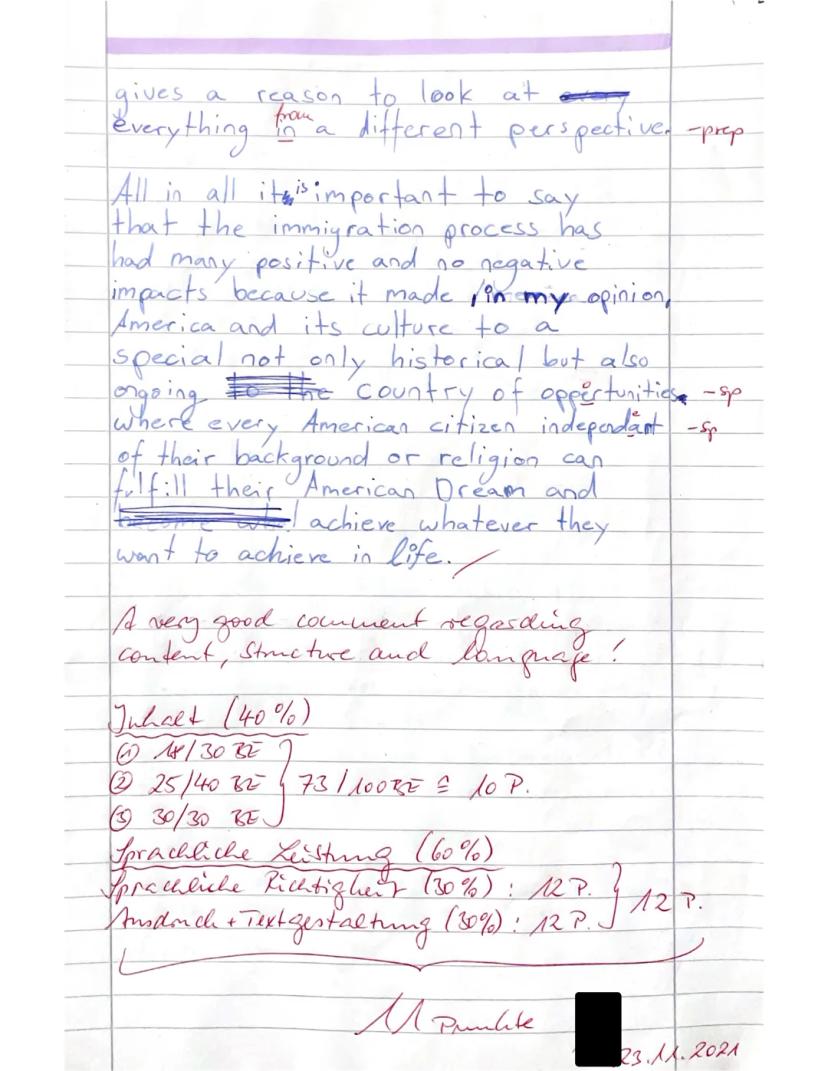 gives a reason to look at
from
everything in a different perspective. -prep
All in all it is important to say
that the immigration process has
had many positive and no negative
impacts because it made, in my opinion,
America and its culture to a
special not only historical but also
ongoing to the country of oppertunities. -sp
where every American citizen independant -sp
of their background or religion can
fulfill their American Dream and
achieve whatever they
want to achieve in life.
A very good comment regarding
content, structure and language!
Inhalt (40%)
① 18/30 BE
② 25/40 BE } 73/100 BE ≙ 10 P.
③ 30/30 BE
Sprachliche Leistung (60%)
Sprachliche Richtigkeit (30%): 12 P.
Ausdruck + Textgestaltung (30%): 12 P. } 12 P.
11 Punkte
23.11.2021